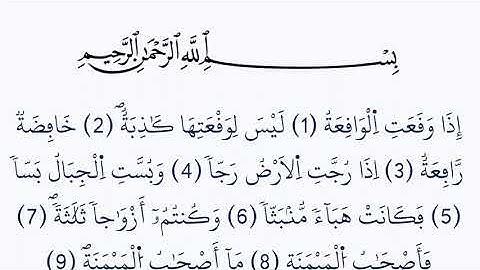 بِسْمِ اللَّهِ الرَّحْمَٰنِ الرَّحِيمِ
إِذَا وَقَعَتِ اِ۬لْوَاقِعَةُ (1) لَيْسَ لِوَقْعَتِهَا كَاذِبَةٌۖ (2) خَافِضَةٌ
رَّافِعَةٌ (3) اِذَا رُجَّتِ اِ۬لَارْضُ رَجّاٗ (4) وَبُسَّتِ اِ۬لْجِبَالُ بَسّاٗ
(5) فَكَانَتْ هَبَآءٗ مُّنۢبَثّاٗ (6) وَكُنتُمُۥٓ أَزْوَٰجاٗ ثَلَٰثَةٗۖ (7)
فَأَصْحَٰبُ اُ۬لْمَيْمَنَةِ (8) مَآ أَصْحَٰبُ اُ۬لْمَيْمَنَةِۖ (9)